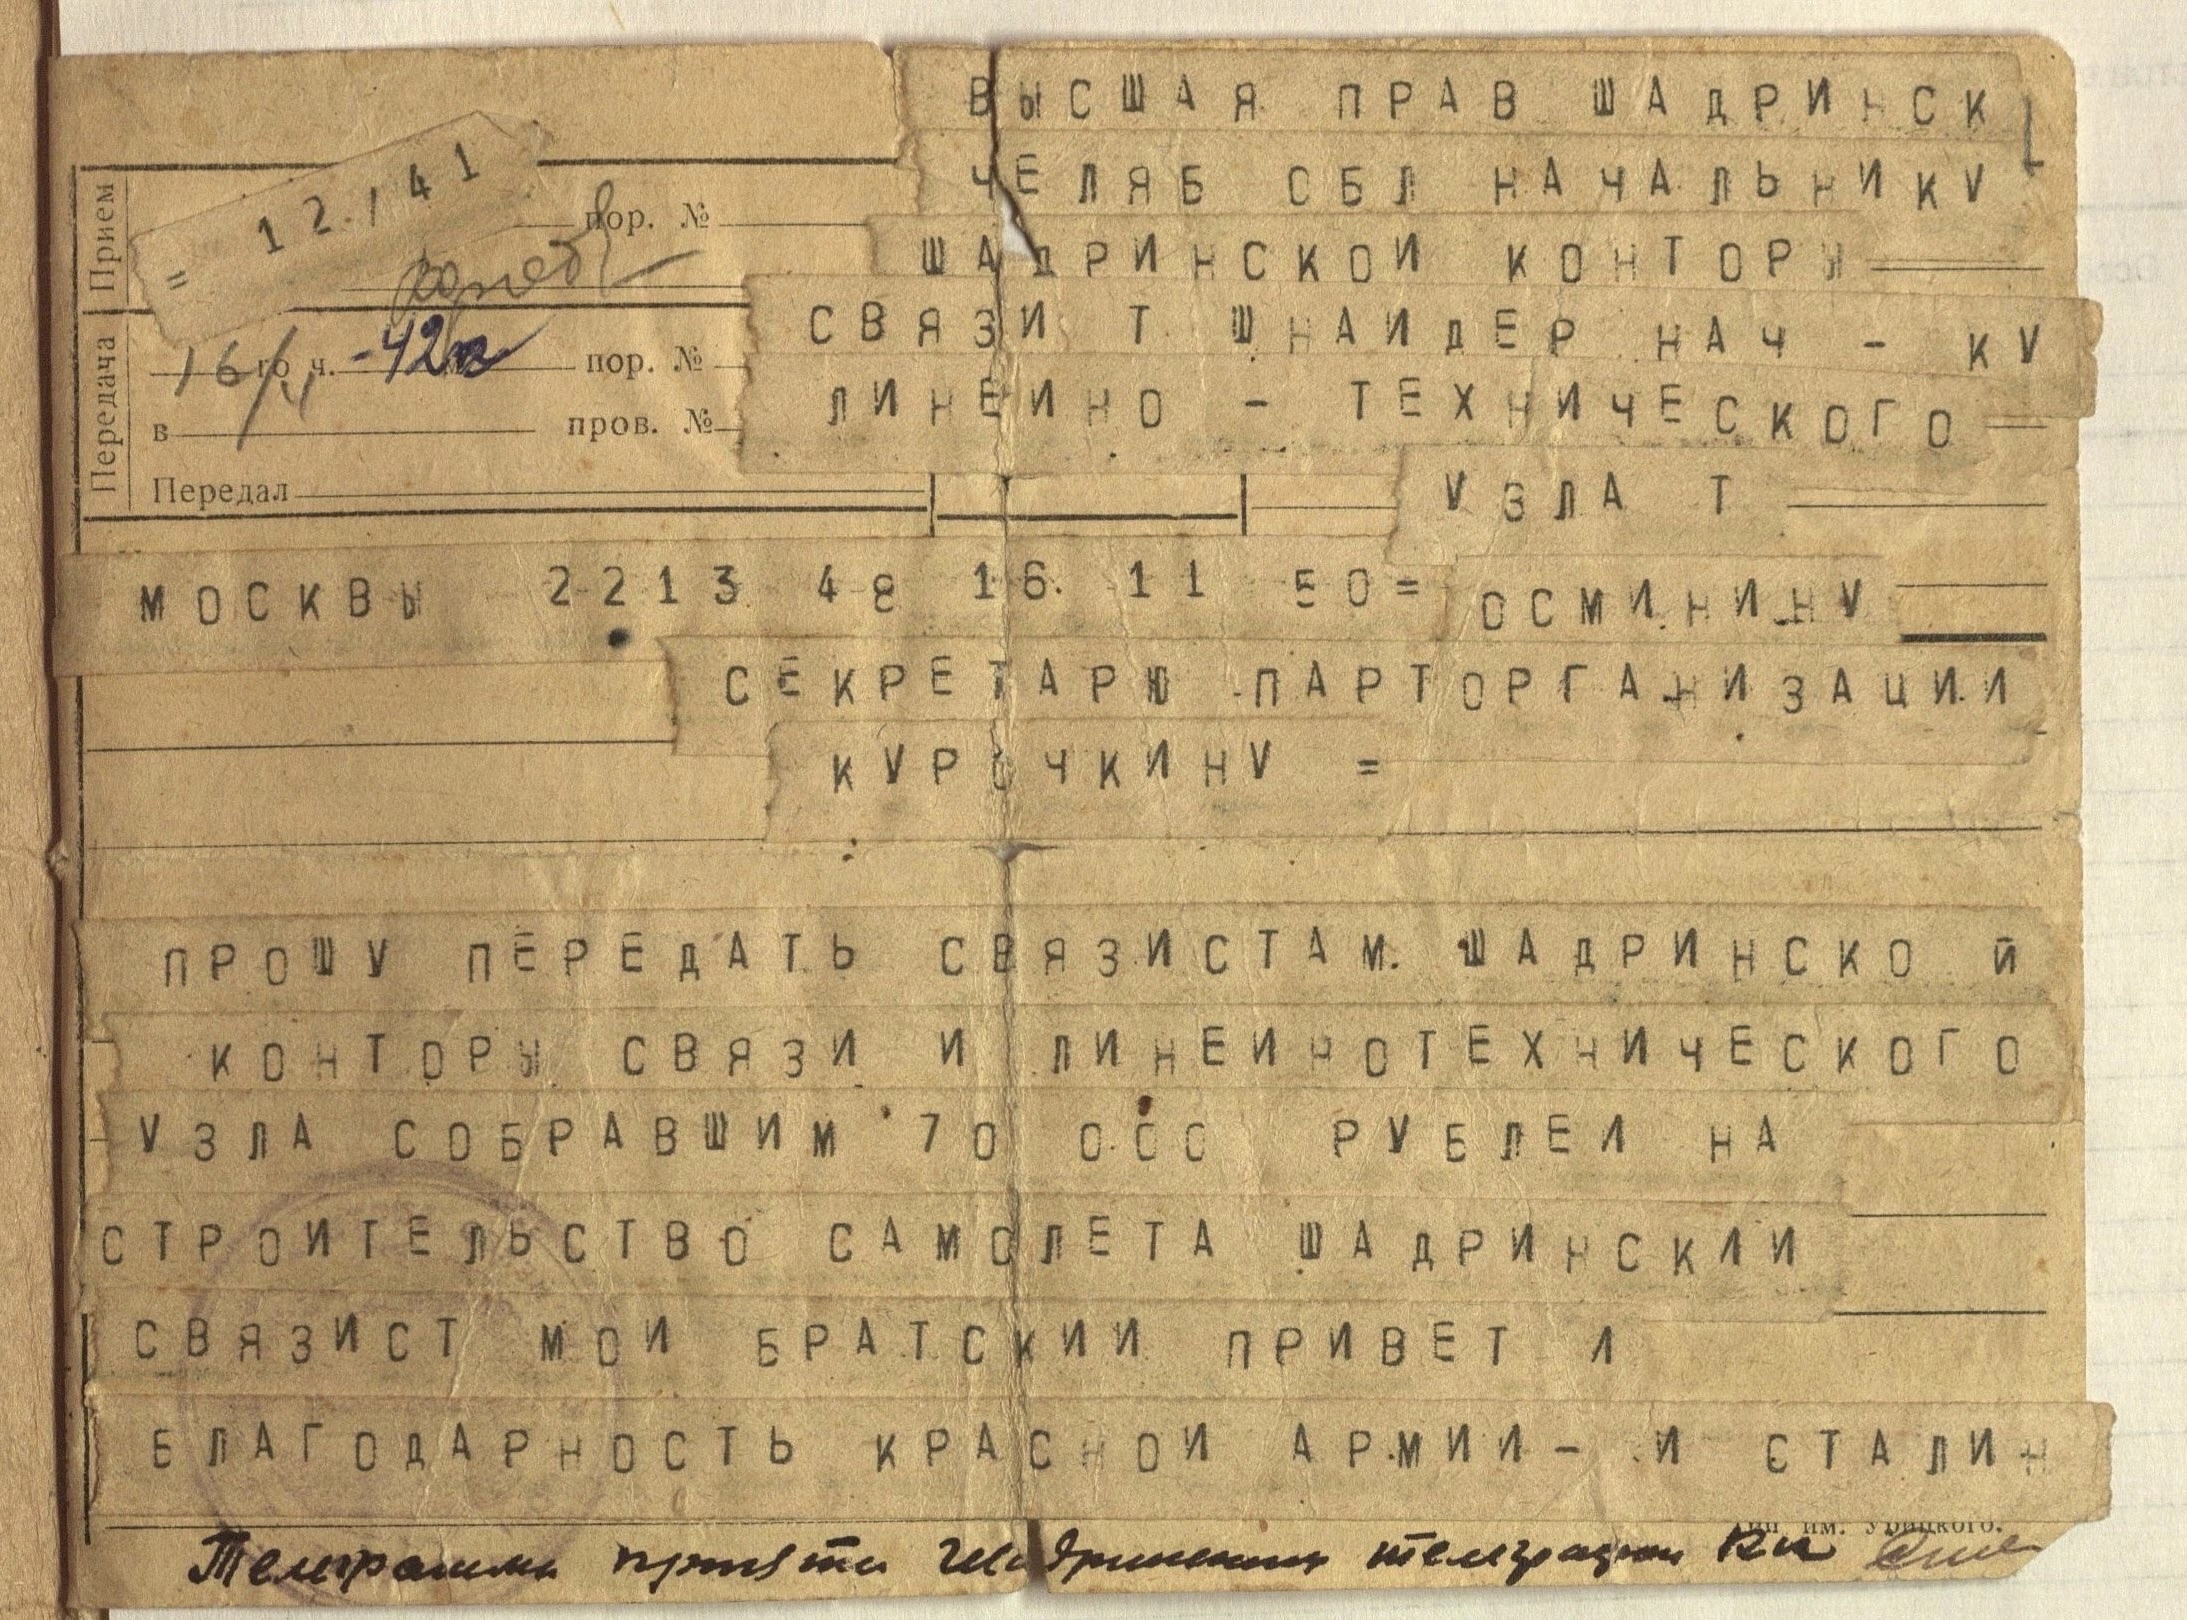 ВЫСШАЯ ПРАВ ШАДРИНСК
ЧЕЛЯБ СБЛ НАЧАЛЬНИКУ
ШАДРИНСКОИ КОНТОРЫ
СВЯЗИ Т ШНАИДЕР НАЧ - КУ
ЛИНЕИНО - ТЕХНИЧЕСКОГО
УЗЛА Т
= 12/41
Прием
пор. №
Передача
16/4 го ч. -42 м пор. №
в пров. №
Передал
МОСКВЫ 2213 48 16. 11 50=
ОСМИНИНУ
СЕКРЕТАРЮ ПАРТОРГАНИЗАЦИИ
КУРОЧКИНУ =
ПРОШУ ПЕРЕДАТЬ СВЯЗИСТАМ ШАДРИНСКО Й
КОНТОРЫ СВЯЗИ И ЛИНЕИНОТЕХНИЧЕСКОГО
УЗЛА СОБРАВШИМ 70 000 РУБЛЕИ НА
СТРОИТЕЛЬСТВО САМОЛЕТА ШАДРИНСКИИ
СВЯЗИСТ МОИ БРАТСКИИ ПРИВЕТ И
БЛАГОДАРНОСТЬ КРАСНОИ АРМИИ - И СТАЛИН
Тип им. Урицкого.
Телеграмма принята Шадринским телеграфом